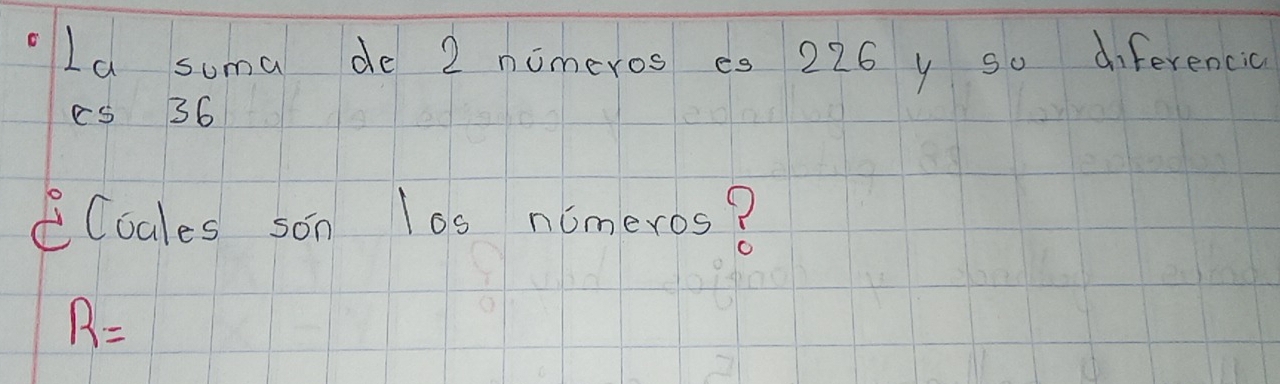 • La suma de 2 números es 226 y su diferencia
es 36
¿Cúales són los números?
R=